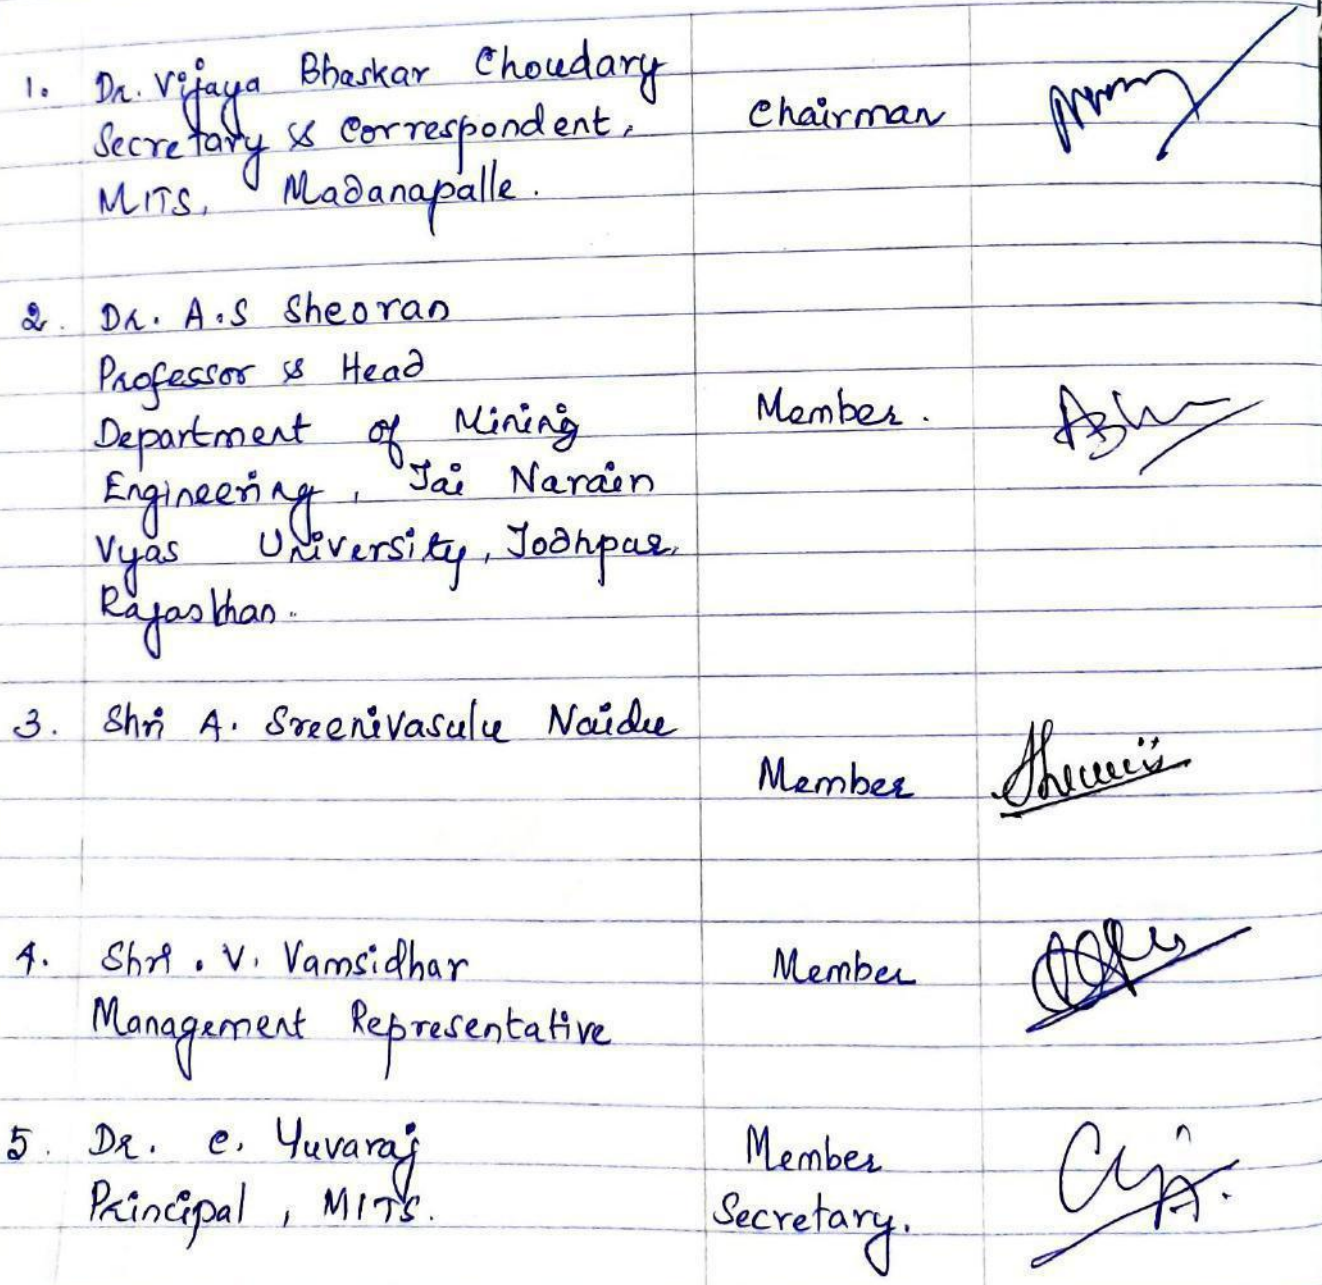 1. Dr. Vijaya Bhaskar Choudary
Secretary & Correspondent,
MITS, Madanapalle.
Chairman
2. Dr. A.S Sheoran
Professor & Head
Department of Mining
Engineering, Jai Narain
Vyas University, Jodhpur,
Rajasthan.
Member.
3. Shri A. Sreenivasulu Naidu
Member
4. Shri. V. Vamsidhar
Management Representative
Member
5. Dr. C. Yuvaraj
Principal, MITS.
Member
Secretary.